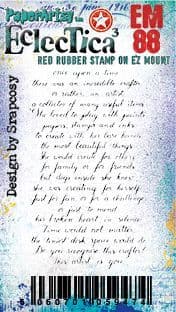 PaperArtsy
EM
88
EclecTica³
RED RUBBER STAMP ON EZ MOUNT
Design by Scrapcosy
Once upon a time
there was an incredible crafter
or rather, an artist,
a collector of many artful items
She loved to play with paints
papers, stamps and inks
to create with her bare hands
the most beautiful things
She would create for others,
for family or for friends
but deep inside she knew
she was creating for herself
Just for fun, or for a challenge
or just to mend
her broken heart in silence
Time would not matter
the tiniest desk space would do
Do you recognise this crafter?
This artist is you